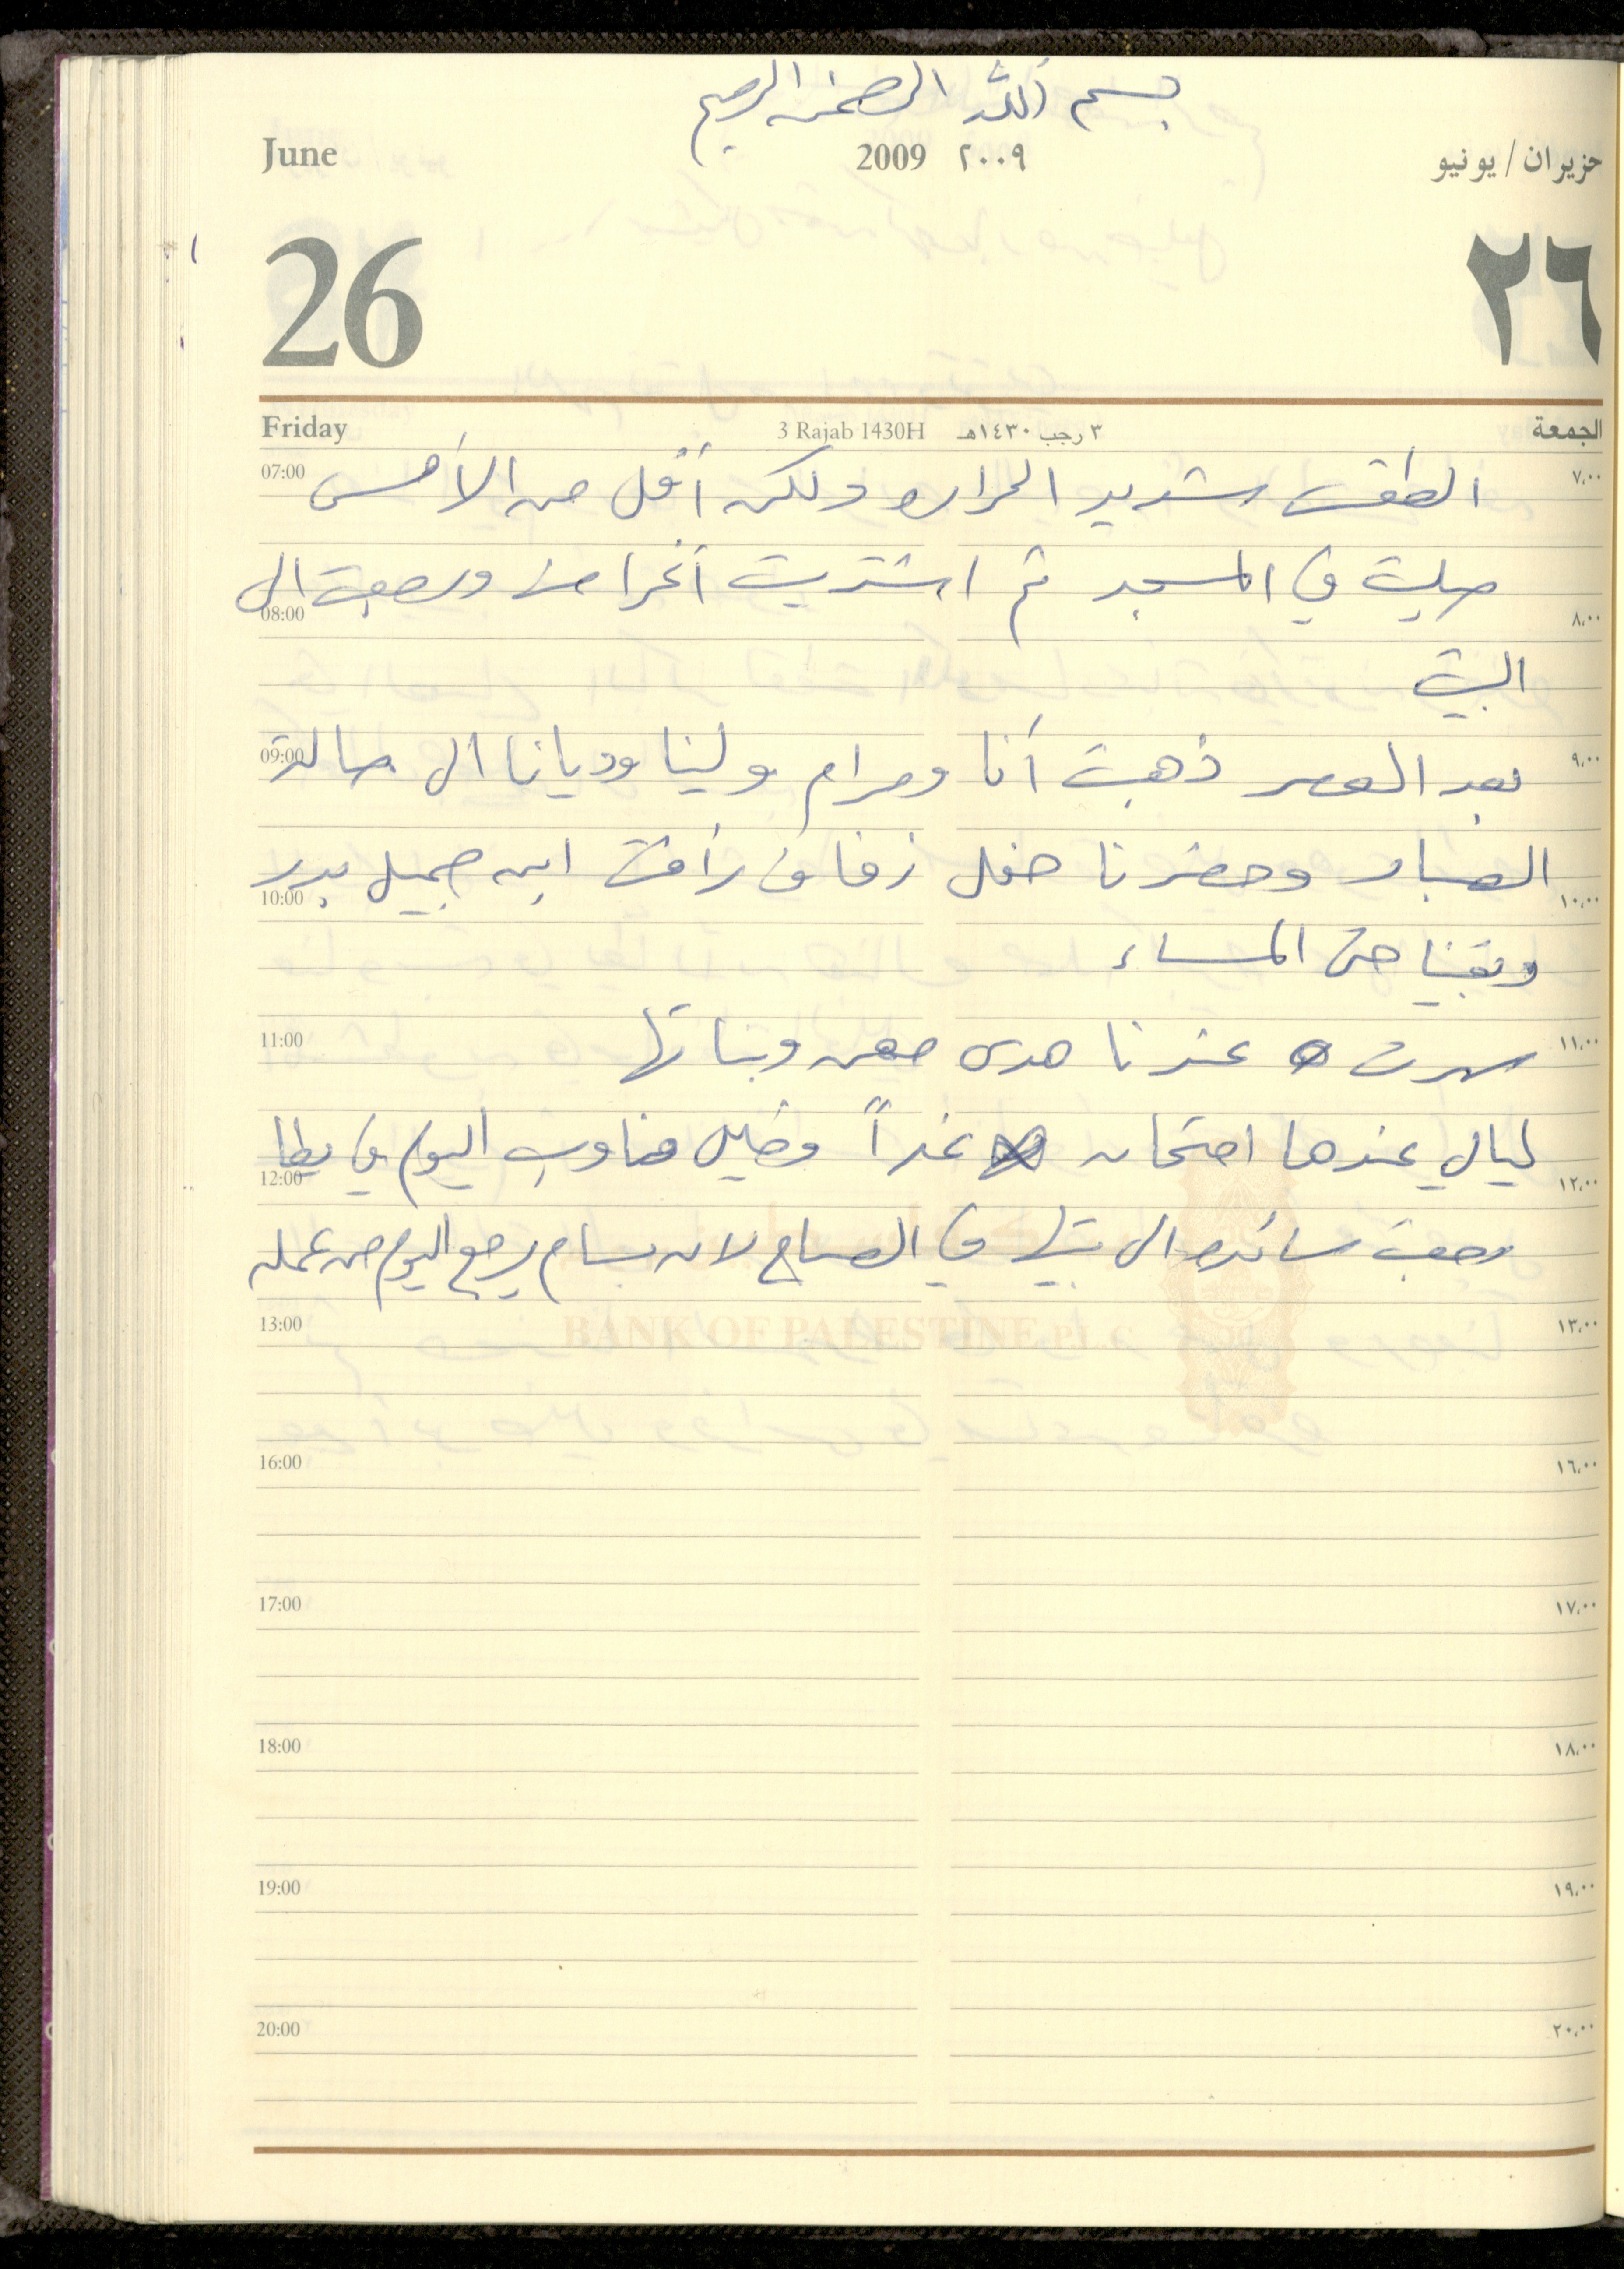 بسم الله الرحمن الرحيم
June 2009 ٢٠٠٩ حزيران / يونيو
26 ٢٦
Friday 3 Rajab 1430H ٣ رجب ١٤٣٠هـ الجمعة
07:00 الطقس شديد الحراره ولكن أقل من الأمس ٧،٠٠
صليت في المسجد ثم اشتريت أغراض ورجعت الى
08:00 ٨،٠٠
البيت
09:00 بعد العصر ذهبت أنا ومرام ولينا وديانا الى صالة ٩،٠٠
وحضرنا حفل زفاف رأفت ابن جميل بدر
10:00 ١٠،٠٠
وبقينا حتى المساء
11:00 سهرت عندنا هدى معن وبناتها ١١،٠٠
ليالي عندها امتحان غداً وخليل مناوب اليوم في يطا
12:00 ١٢،٠٠
رجعت سائده الى بيتها في الصباح لان بسام يرجع اليوم من عمله
13:00 BANK OF PALESTINE P.L.C ١٣،٠٠
16:00 ١٦،٠٠
17:00 ١٧،٠٠
18:00 ١٨،٠٠
19:00 ١٩،٠٠
20:00 ٢٠،٠٠